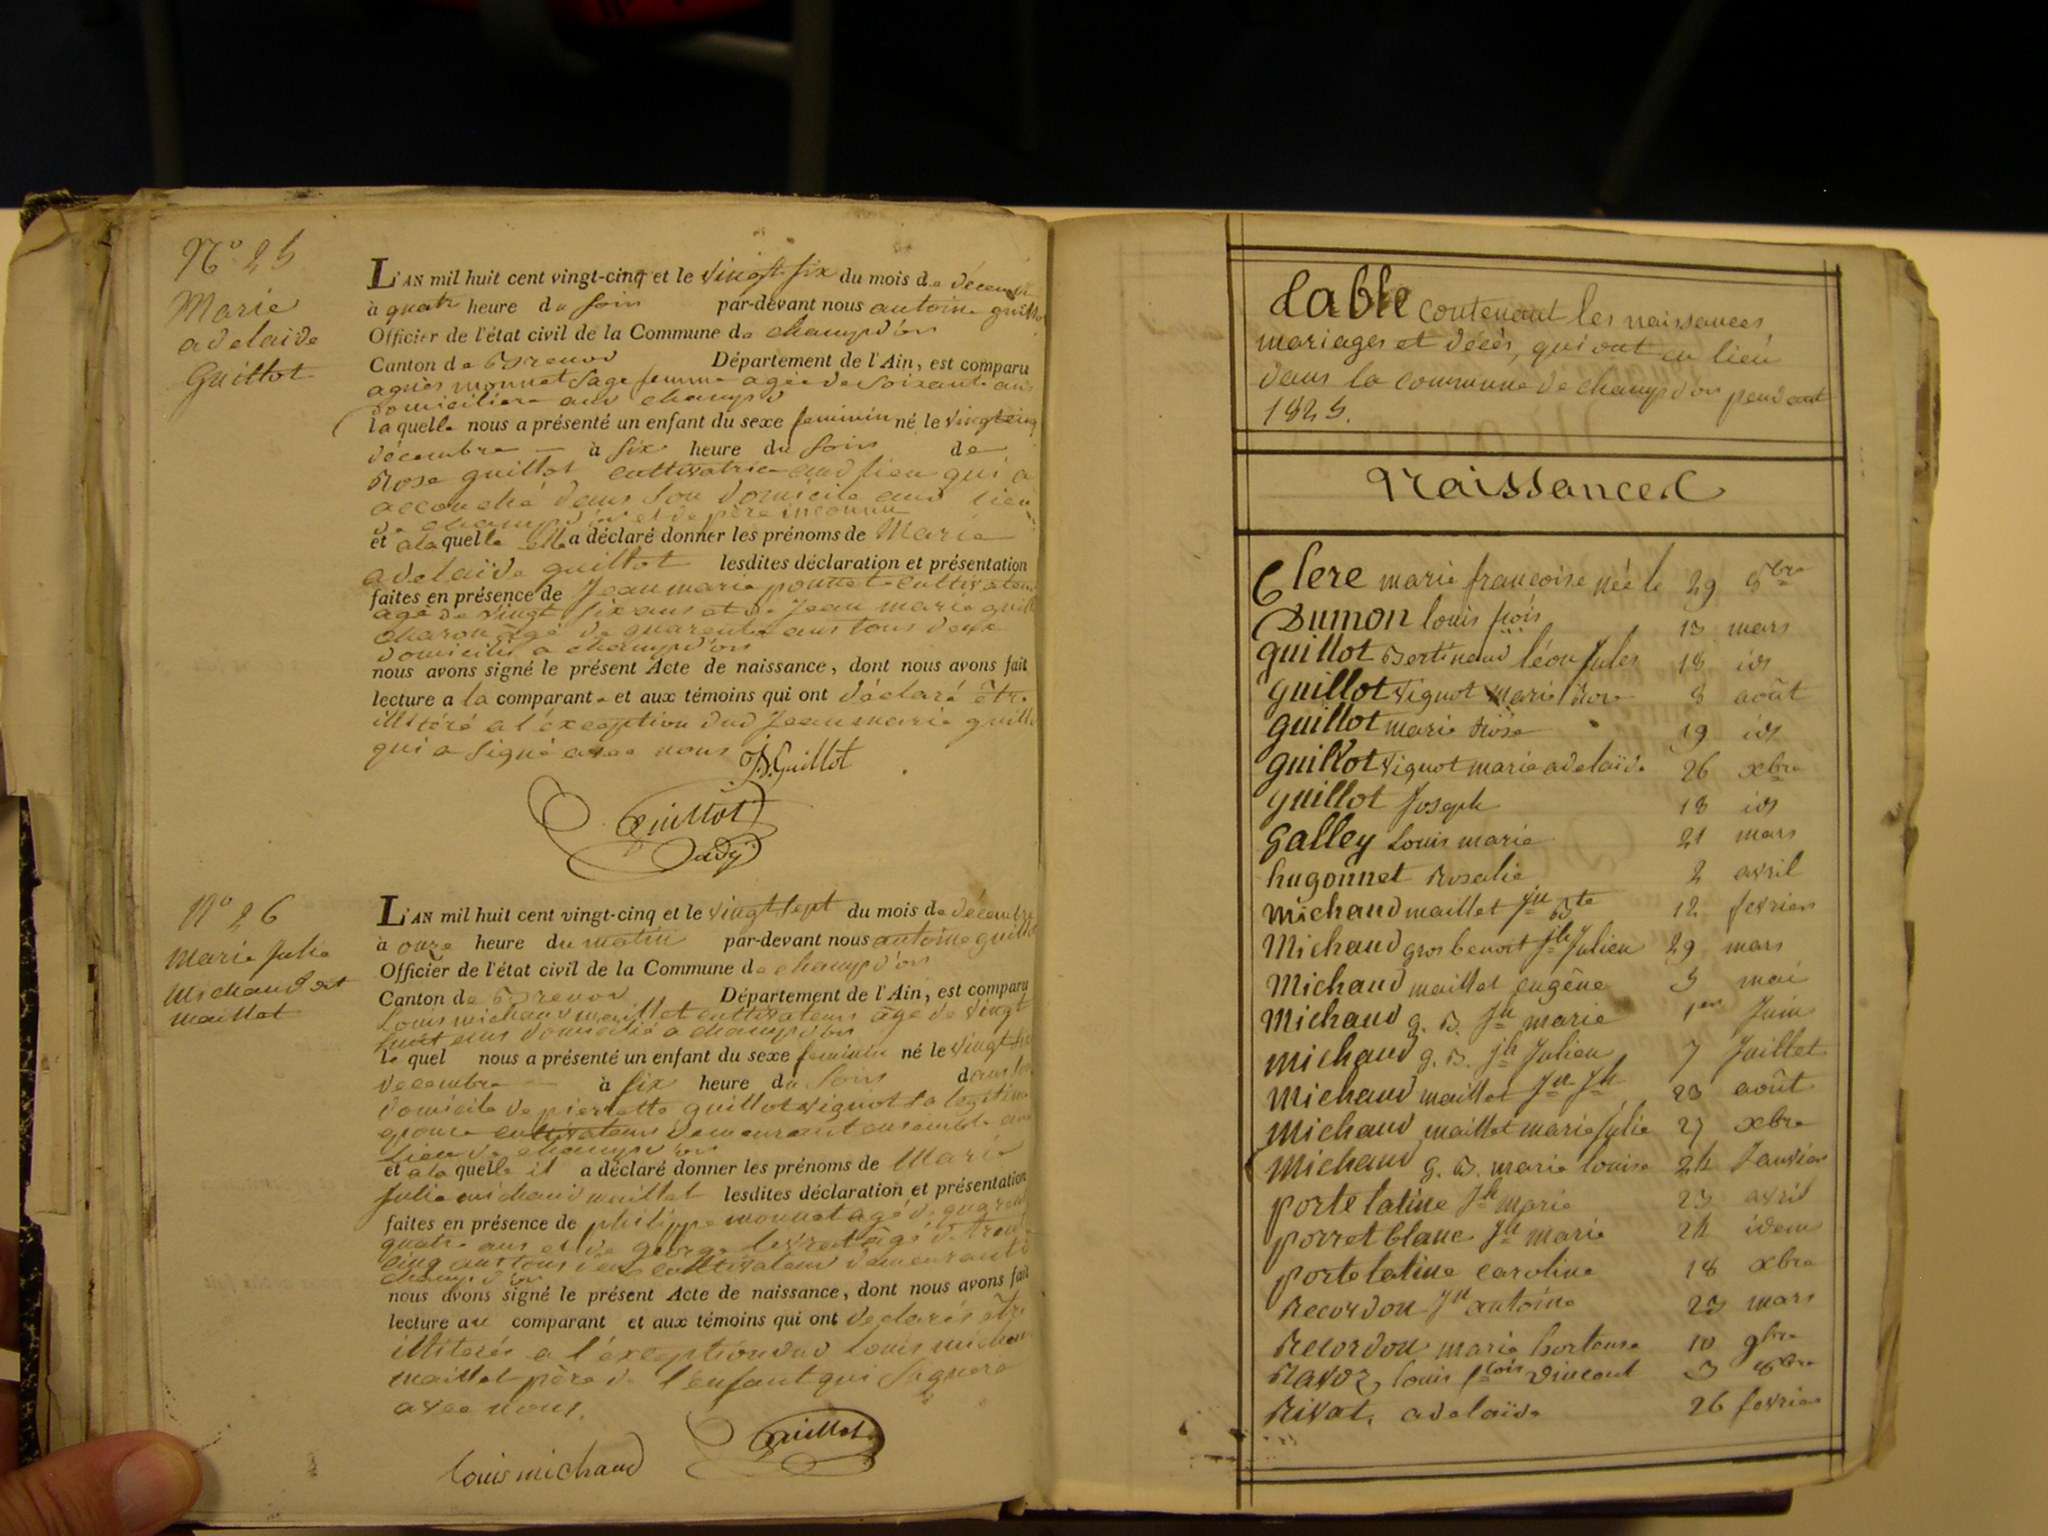 N.o 25
Marie
adelaide
Guillot
L'AN mil huit cent vingt-cinq et le vingt six du mois de décembre
à quatre heure du soir par-devant nous antoine guillot
Officier de l'état civil de la Commune de champdor
Canton de Brenod Département de l'Ain, est comparu
agnès monnet sage femme agée de soixante ans
domiciliere aud champd
laquelle nous a présenté un enfant du sexe feminin né le vingtcinq
décembre à six heure du soir de
Rose guillot cultivatrice aud lieu qui a
accouché dans son domicile aud lieu
de champd'or et de père inconnu
et a la quelle elle a déclaré donner les prénoms de Marie
adelaïde guillot lesdites déclaration et présentation
faites en présence de Jean marie cultivateur
agé de vingt six ans et de Jean marie guillot
charon âgé de quarente ans tous deux
domicilié a champd'or
nous avons signé le présent Acte de naissance, dont nous avons fait
lecture a la comparante et aux témoins qui ont déclaré être
illitéré a l'éxception dud Jean marie guillot
qui a signé avec nous
Guillot
Guillot
adj
N.o 26
Marie Julie
Michaud dit
maillet
L'AN mil huit cent vingt-cinq et le vingt sept du mois de décembre
à onze heure du matin par-devant nous antoine guillot
Officier de l'état civil de la Commune de champd'or
Canton de Brenod Département de l'Ain, est comparu
Louis michaud maillet cultivateur âgé de vingt
huit ans domicilié a champd'or
le quel nous a présenté un enfant du sexe feminin né le vingt six
decembre à six heure du soir dans son
domicile de pierrette guillot vignot sa legitime
epouse cultivateur demeurant ensemble aud
lieu de champd'or
et a la quelle il a déclaré donner les prénoms de Marie
Julie michaud maillet lesdites déclaration et présentation
faites en présence de philippe monnet agé de quarente
quatre ans et de george levrat âgé de trente
cinq ans tous deux cultivateur demeurant a
champd'or
nous avons signé le présent Acte de naissance, dont nous avons fait
lecture au comparant et aux témoins qui ont declarés être
illiterés a l'éxception dud Louis michaud
maillet père de l'enfant qui signera
avec nous.
Louis michaud
Guillot
Table contenant les naissances
mariages et décès, qui ont eu lieu
dans la commune de champdor pendant
1825.
Naissances
Clere marie francoise née le 29 8bre
Dumon louis fçois 13 mars
guillot Bertinand léon Jules 18 id
guillot vignot marie Rose 8 août
guillot marie Rose 19 id
guillot vignot marie adelaïde 26 xbre
guillot Joseph 18 id
Galley Louis marie 21 mars
hugonnet Rosalie 2 avril
michaud maillet Jn Bte 12 fevrier
Michaud gros benoit Jh Julien 29 mars
Michaud maillet eugêne 5 mai
Michaud g. B. Jh marie 1er Juin
michaud g. B. Jh Julien 7 Juillet
Michaud maillet Jn Jh 23 août
Michaud maillet marie Julie 27 xbre
Michaud g. B. marie louise 24 Janvier
portelatine Jh marie 23 avril
porret blanc Jh marie 24 idem
portelatine caroline 18 xbre
Recordon Jn antoine 23 mars
Recordon marie hortense 10 9bre
Ravoz louis fçois vincent 3 8bre
Rivat, adelaïde 26 fevrier